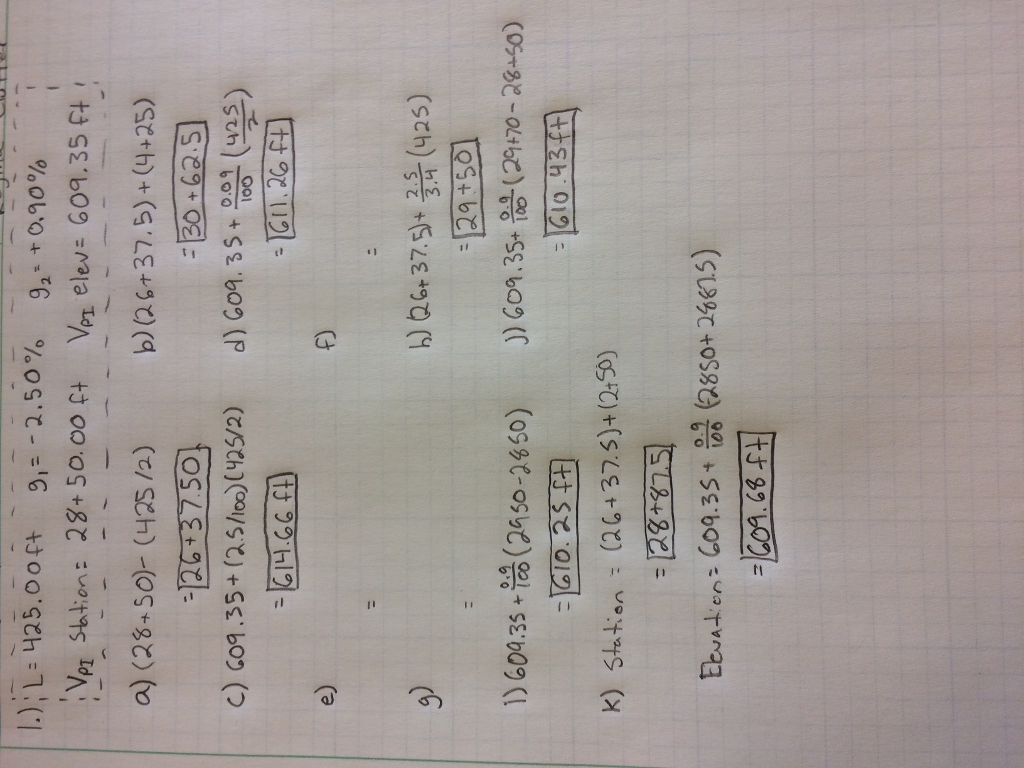 1.) L = 425.00 ft g₁ = -2.50% g₂ = +0.90%
V_PI Station = 28+50.00 ft V_PI elev = 609.35 ft
a) (28+50) - (425/2) b) (26+37.5) + (4+25)
= 26+37.50 = 30+62.5
c) 609.35 + (2.5/100)(425/2) d) 609.35 + 0.09/100 (425/2)
= 614.66 ft = 611.26 ft
e) f)
= =
g) h) (26+37.5) + 2.5/3.4 (425)
= = 29+50
i) 609.35 + 0.9/100 (2950-2850) j) 609.35 + 0.9/100 (29+70 - 28+50)
= 610.25 ft = 610.43 ft
K) Station = (26+37.5) + (2+50)
= 28+87.5
Elevation = 609.35 + 0.9/100 (2850 + 2887.5)
= 609.68 ft